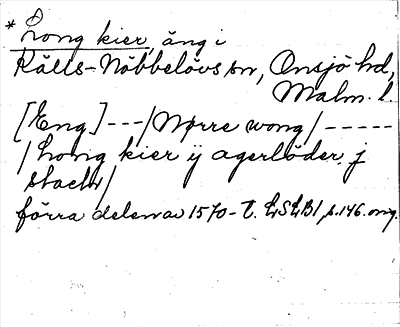 * Long kier, äng i
Källs-Nöbbelövs sn, Onsjö hd,
Malm. l.
[Eng] --- / Nørre wong / -----
/ Long kier ij agerlöder j
stack /
förra delen av 1570-t. LSLB1, p. 146. omg.